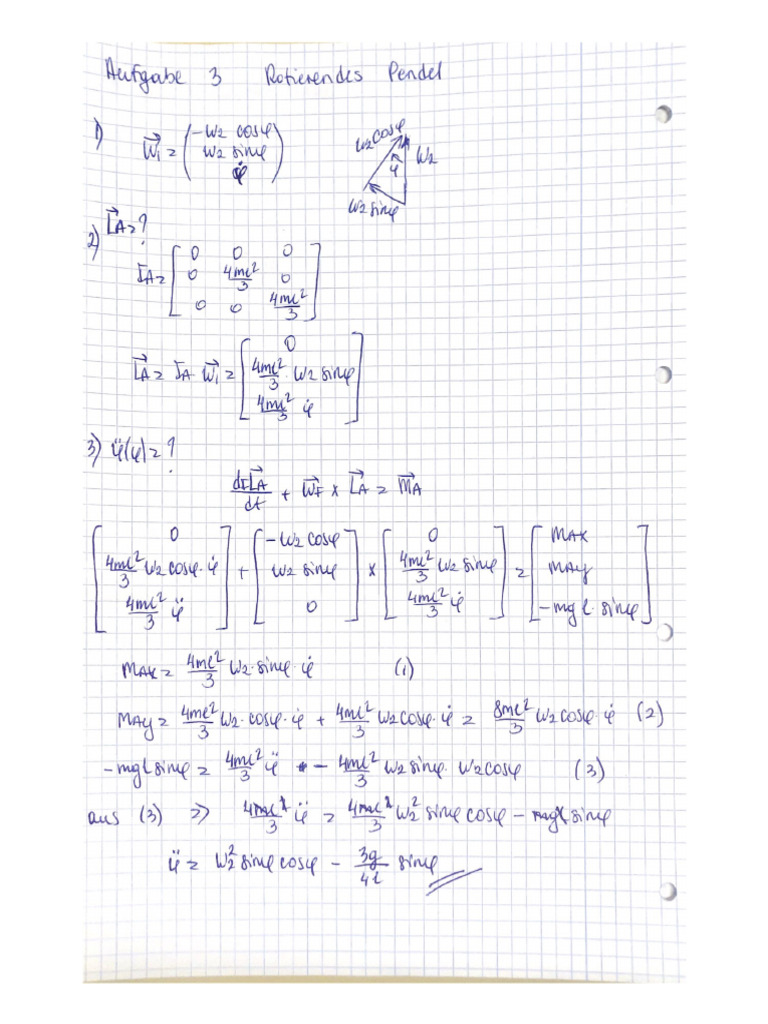 Aufgabe 3 Rotierendes Pendel
1) W⃗₁ = (-W₂ cosφ
W₂ sinφ
φ̇)
W₂cosφ
φ
W₂
W₂ sinφ
2) L⃗A = ?
JA = [0 0 0
0 4ml²/3 0
0 0 4ml²/3]
L⃗A = JA · W⃗₁ = [0
4ml²/3 · W₂ sinφ
4ml²/3 φ̇]
3) φ̈(φ) = ?
dFL⃗A/dt + W⃗F × L⃗A = M⃗A
[0
4ml²/3 W₂ cosφ · φ̇
4ml²/3 φ̈] + [-W₂ cosφ
W₂ sinφ
0] × [0
4ml²/3 W₂ sinφ
4ml²/3 φ̇] = [MAX
MAY
-mgl · sinφ]
MAX = 4ml²/3 W₂ · sinφ · φ̇ (1)
MAY = 4ml²/3 W₂ · cosφ · φ̇ + 4ml²/3 W₂ cosφ · φ̇ = 8ml²/3 W₂ cosφ · φ̇ (2)
-mgl sinφ = 4ml²/3 φ̈ - 4ml²/3 W₂ sinφ · W₂ cosφ (3)
aus (3) ⇒ 4ml²/3 φ̈ = 4ml²/3 W₂² sinφ cosφ - mgl sinφ
φ̈ = W₂² sinφ cosφ - 3g/4l sinφ